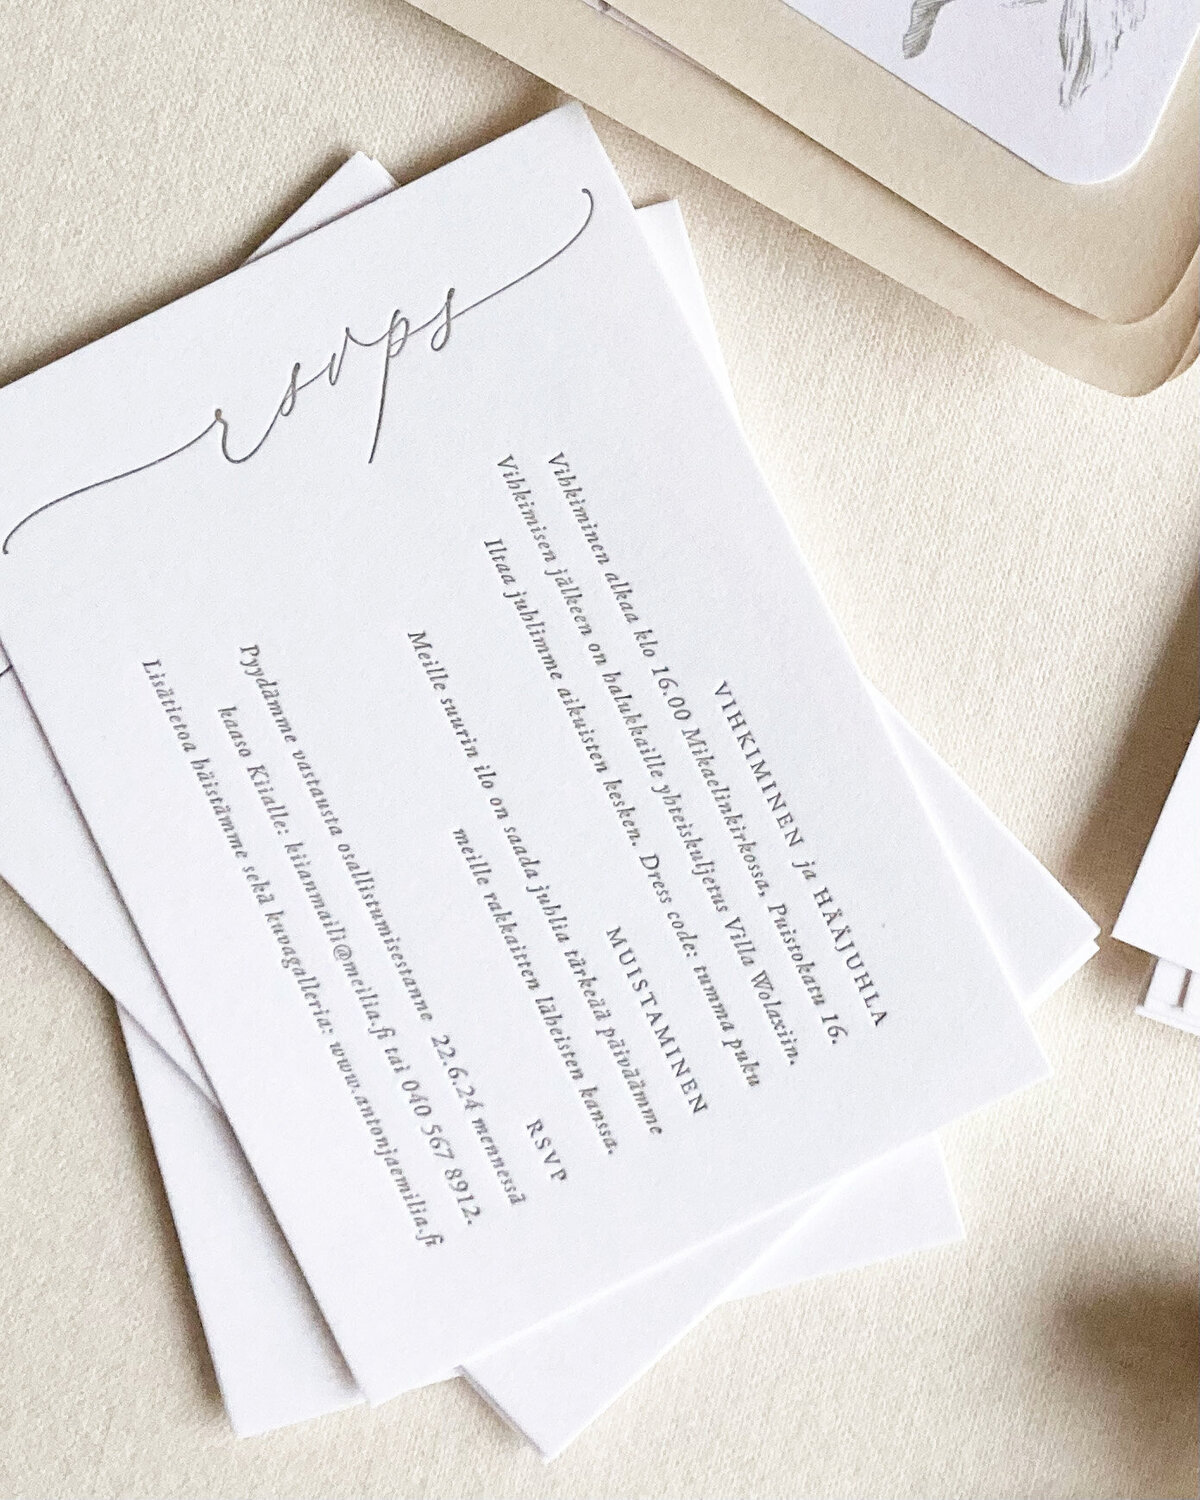 rsvps
VIHKIMINEN ja HÄÄJUHLA
Vihkiminen alkaa klo 16.00 Mikaelinkirkossa, Puistokatu 16.
Vihkimisen jälkeen on halukkaille yhteiskuljetus Villa Wolaxiin.
Iltaa juhlimme aikuisten kesken. Dress code: tumma puku
MUISTAMINEN
Meille suurin ilo on saada juhlia tärkeää päiväämme
meille rakkaitten läheisten kanssa.
RSVP
Pyydämme vastausta osallistumisestanne 22.6.24 mennessä
kaaso Kiialle: kiianmaili@meilia.fi tai 040 567 8912.
Lisätietoa häistämme sekä kuvagalleria: www.antonjaemilia.fi